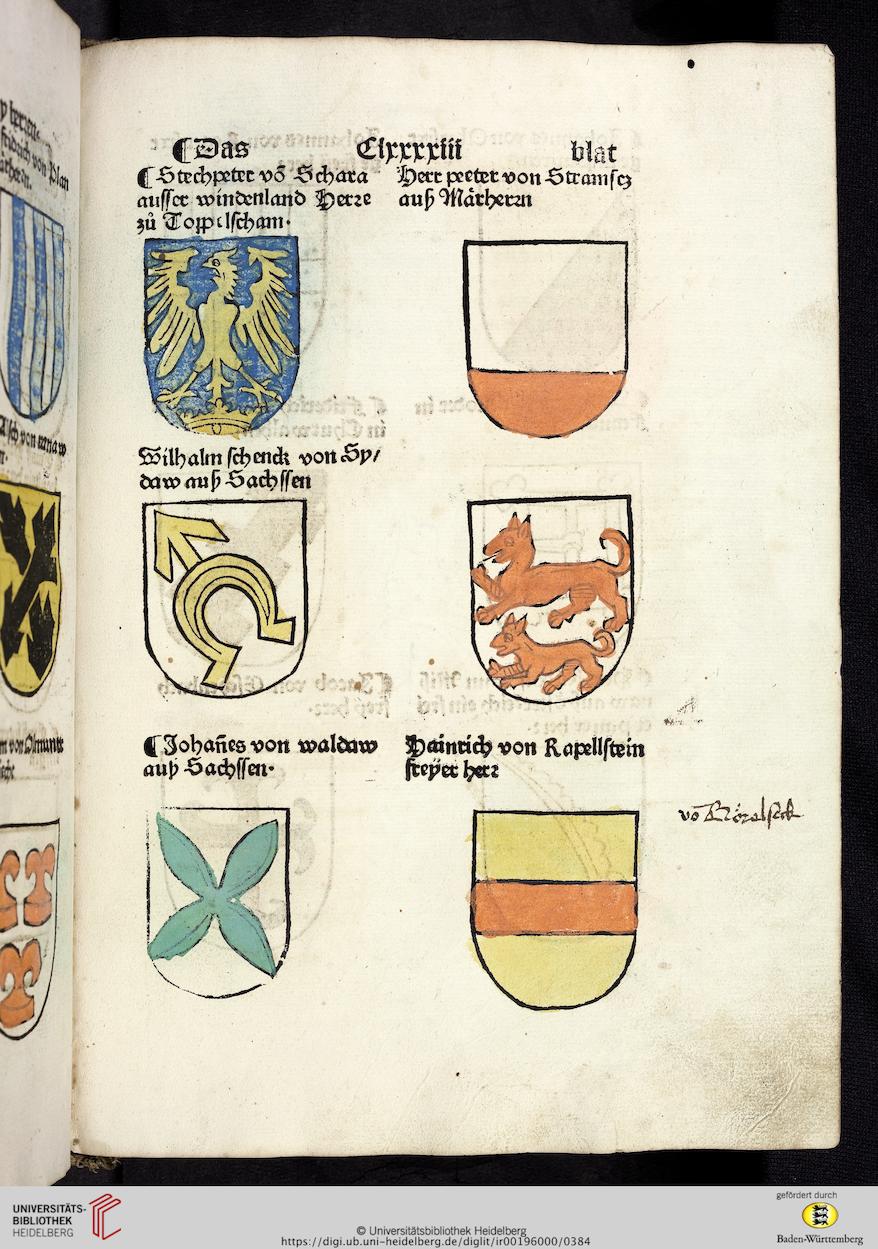 ¶ Das Clxxxxiii blat
¶ Stechpeter vō Schara
ausser windenland Herre
zů
Herr peeter von
auß Märherrn
Wilhalm schenck von Sy/
daw auß Sachssen
¶ Johañes von waldaw
auß Sachssen.
Hainrich von Rapellstein
freÿer herr
vō
UNIVERSITÄTS-
BIBLIOTHEK
HEIDELBERG
© Universitätsbibliothek Heidelberg
https://digi.ub.uni-heidelberg.de/diglit/ir00196000/0384
gefördert durch
Baden-Württemberg